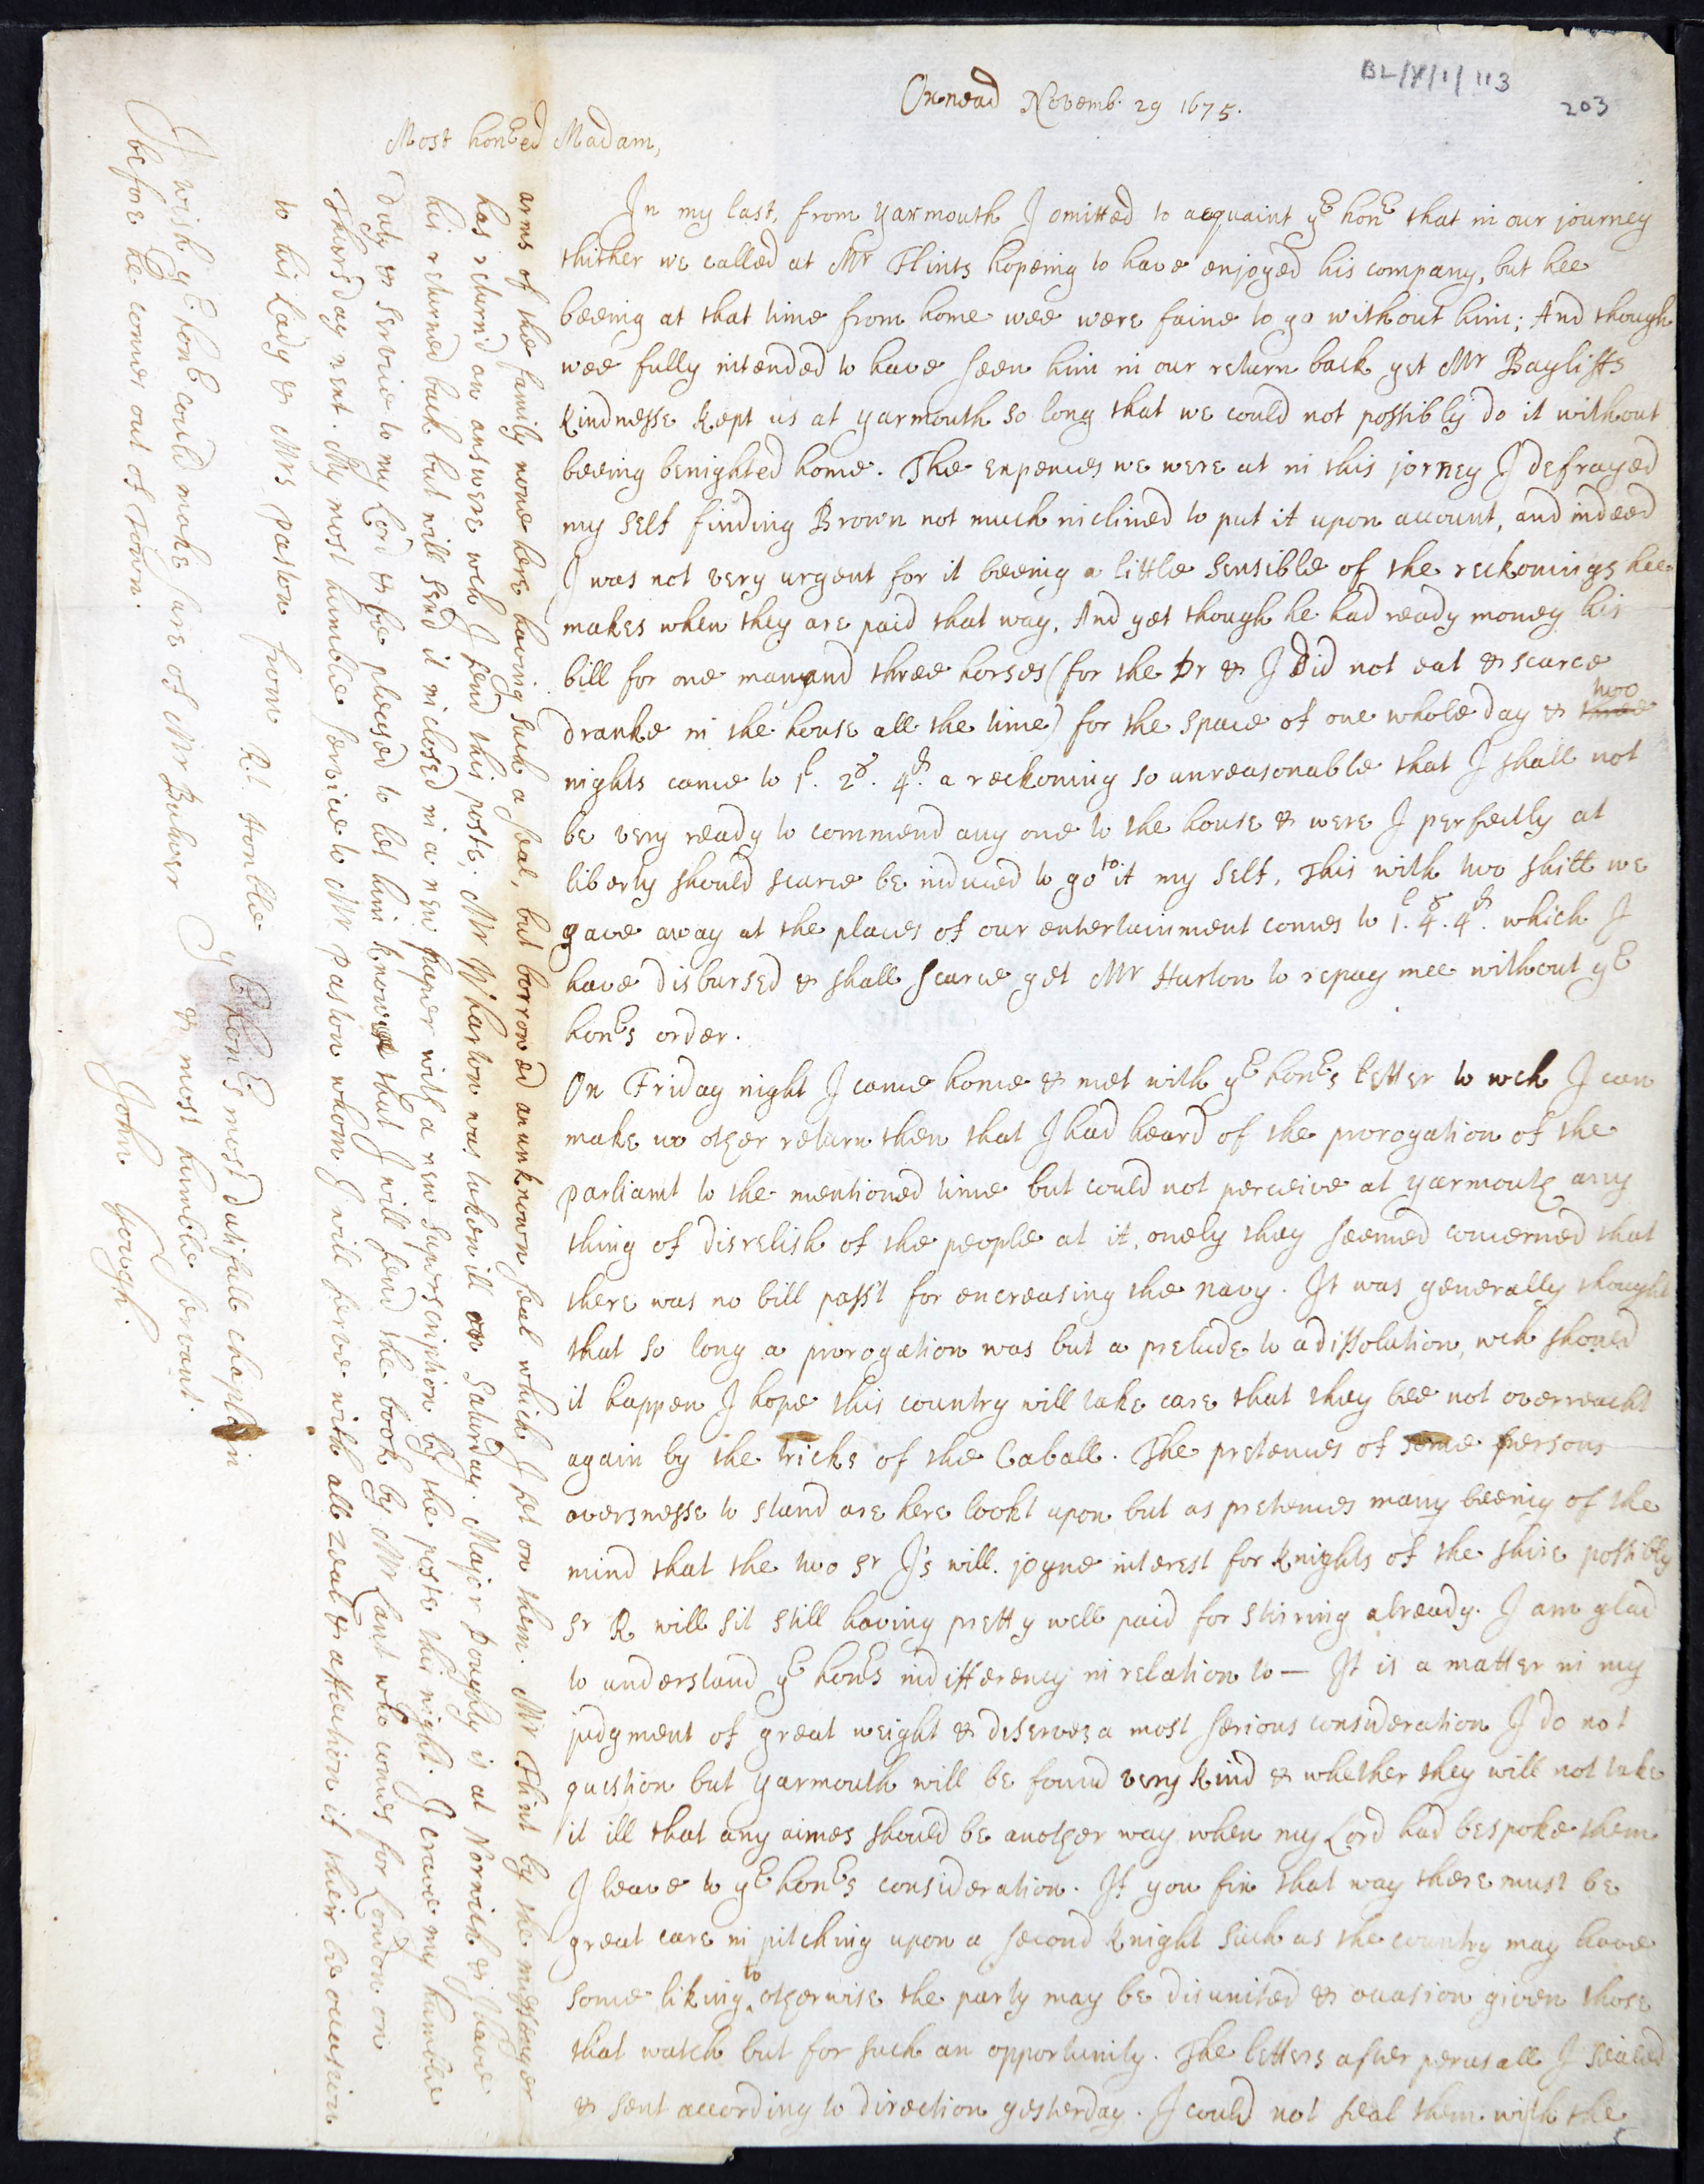 BL/Y/1/113
203
Oxnead Novemb. 29 1675.
Most honred Madam,
In my last, from yarmouth I omitted to acquaint yr honr that in our journey
thither we called at Mr Flints hopeing to have enjoyed his company, but hee
beeing at that time from home wee were faine to go without him; And though
wee fully intended to have seen him in our return back yet Mr Bayliffs
kindnesse kept us at yarmouth so long that we could not possibly do it without
beeing benighted home. The expences we were at in this jorney I defrayed
my self finding Brown not much inclined to put it upon account, and indeed
I was not very urgent for it beeing a little sensible of the reckonings hee
makes when they are paid that way. And yet though he had ready money his
bill for one man and three horses (for the Dr & I did not eat & scarce
dranke in the house all the time) for the space of one whole day & three two
nights came to 1l. 2s. 4d. a reckoning so unreasonable that I shall not
be very ready to commend any one to the house & were I perfectly at
liberty should scarce be induced to go to it my self. This with two shill we
gave away at the places of our entertainment comes to 1l. 4s. 4d. which I
have disbursed & shall scarce get Mr Hurton to repay mee without yr
honrs order.
On Friday night I came home & met with yr honrs letter to wch I can
make no other return then that I had heard of the prorogation of the
parliamt to the mentioned time but could not perceive at yarmouth any
thing of disrelish of the people at it, onely they seemed concerned that
there was no bill pass't for encreasing the navy. It was generally thought
that so long a prorogation was but a prelude to a dissolution, wch should
it happen I hope this country will take care that they bee not overreacht
again by the tricks of the Caball. The pretences of some persons
aversnesse to stand are here lookt upon but as pretences many beeing of the
mind that the two Sr J's will joyne interest for knights of the shire possibly
Sr R will sit still having pretty well paid for stirring already. I am glad
to understand yr honrs indifferency in relation to — It is a matter in my
judgment of great weight & deserves a most serious consideration I do not
question but yarmouth will be found very kind & whether they will not take
it ill that any aimes should be another way when my Lord had bespoke them
I leave to yr honrs consideration. If you fix that way there must be
great care in pitching upon a second knight such as the country may have
some liking to otherwise the party may be disunited & occasion given those
that watch but for such an opportunity. The letters after perusall I sealed
& sent according to direction yesterday. I could not seal them with the
arms of the family none here having such a seal, but borrowed an unknown seal which I set on them. Mr Flint by the messenger
has return'd an answere wch I send this poste. Mr Wharton was taken ill on Saturday. Major Doughty is at Norwich & I have
his returned back but will send it inclosed in a new paper with a new superscription by the poste this night. I crave my humble
duty & service to my Lord & bee pleased to let him know that I will send the book by Mr Cant who comes for London on
Thursday next. My most humble service to Mr Paston whom I will serve with all zeal & affection if their be occasion
to his Lady & Mrs Paston from Rt honble
yr honrs most dutifull chaplain
& most humble servant.
John Gough.
I wish yr honr could make sure of Mr Bulwer
before he comes out of town.